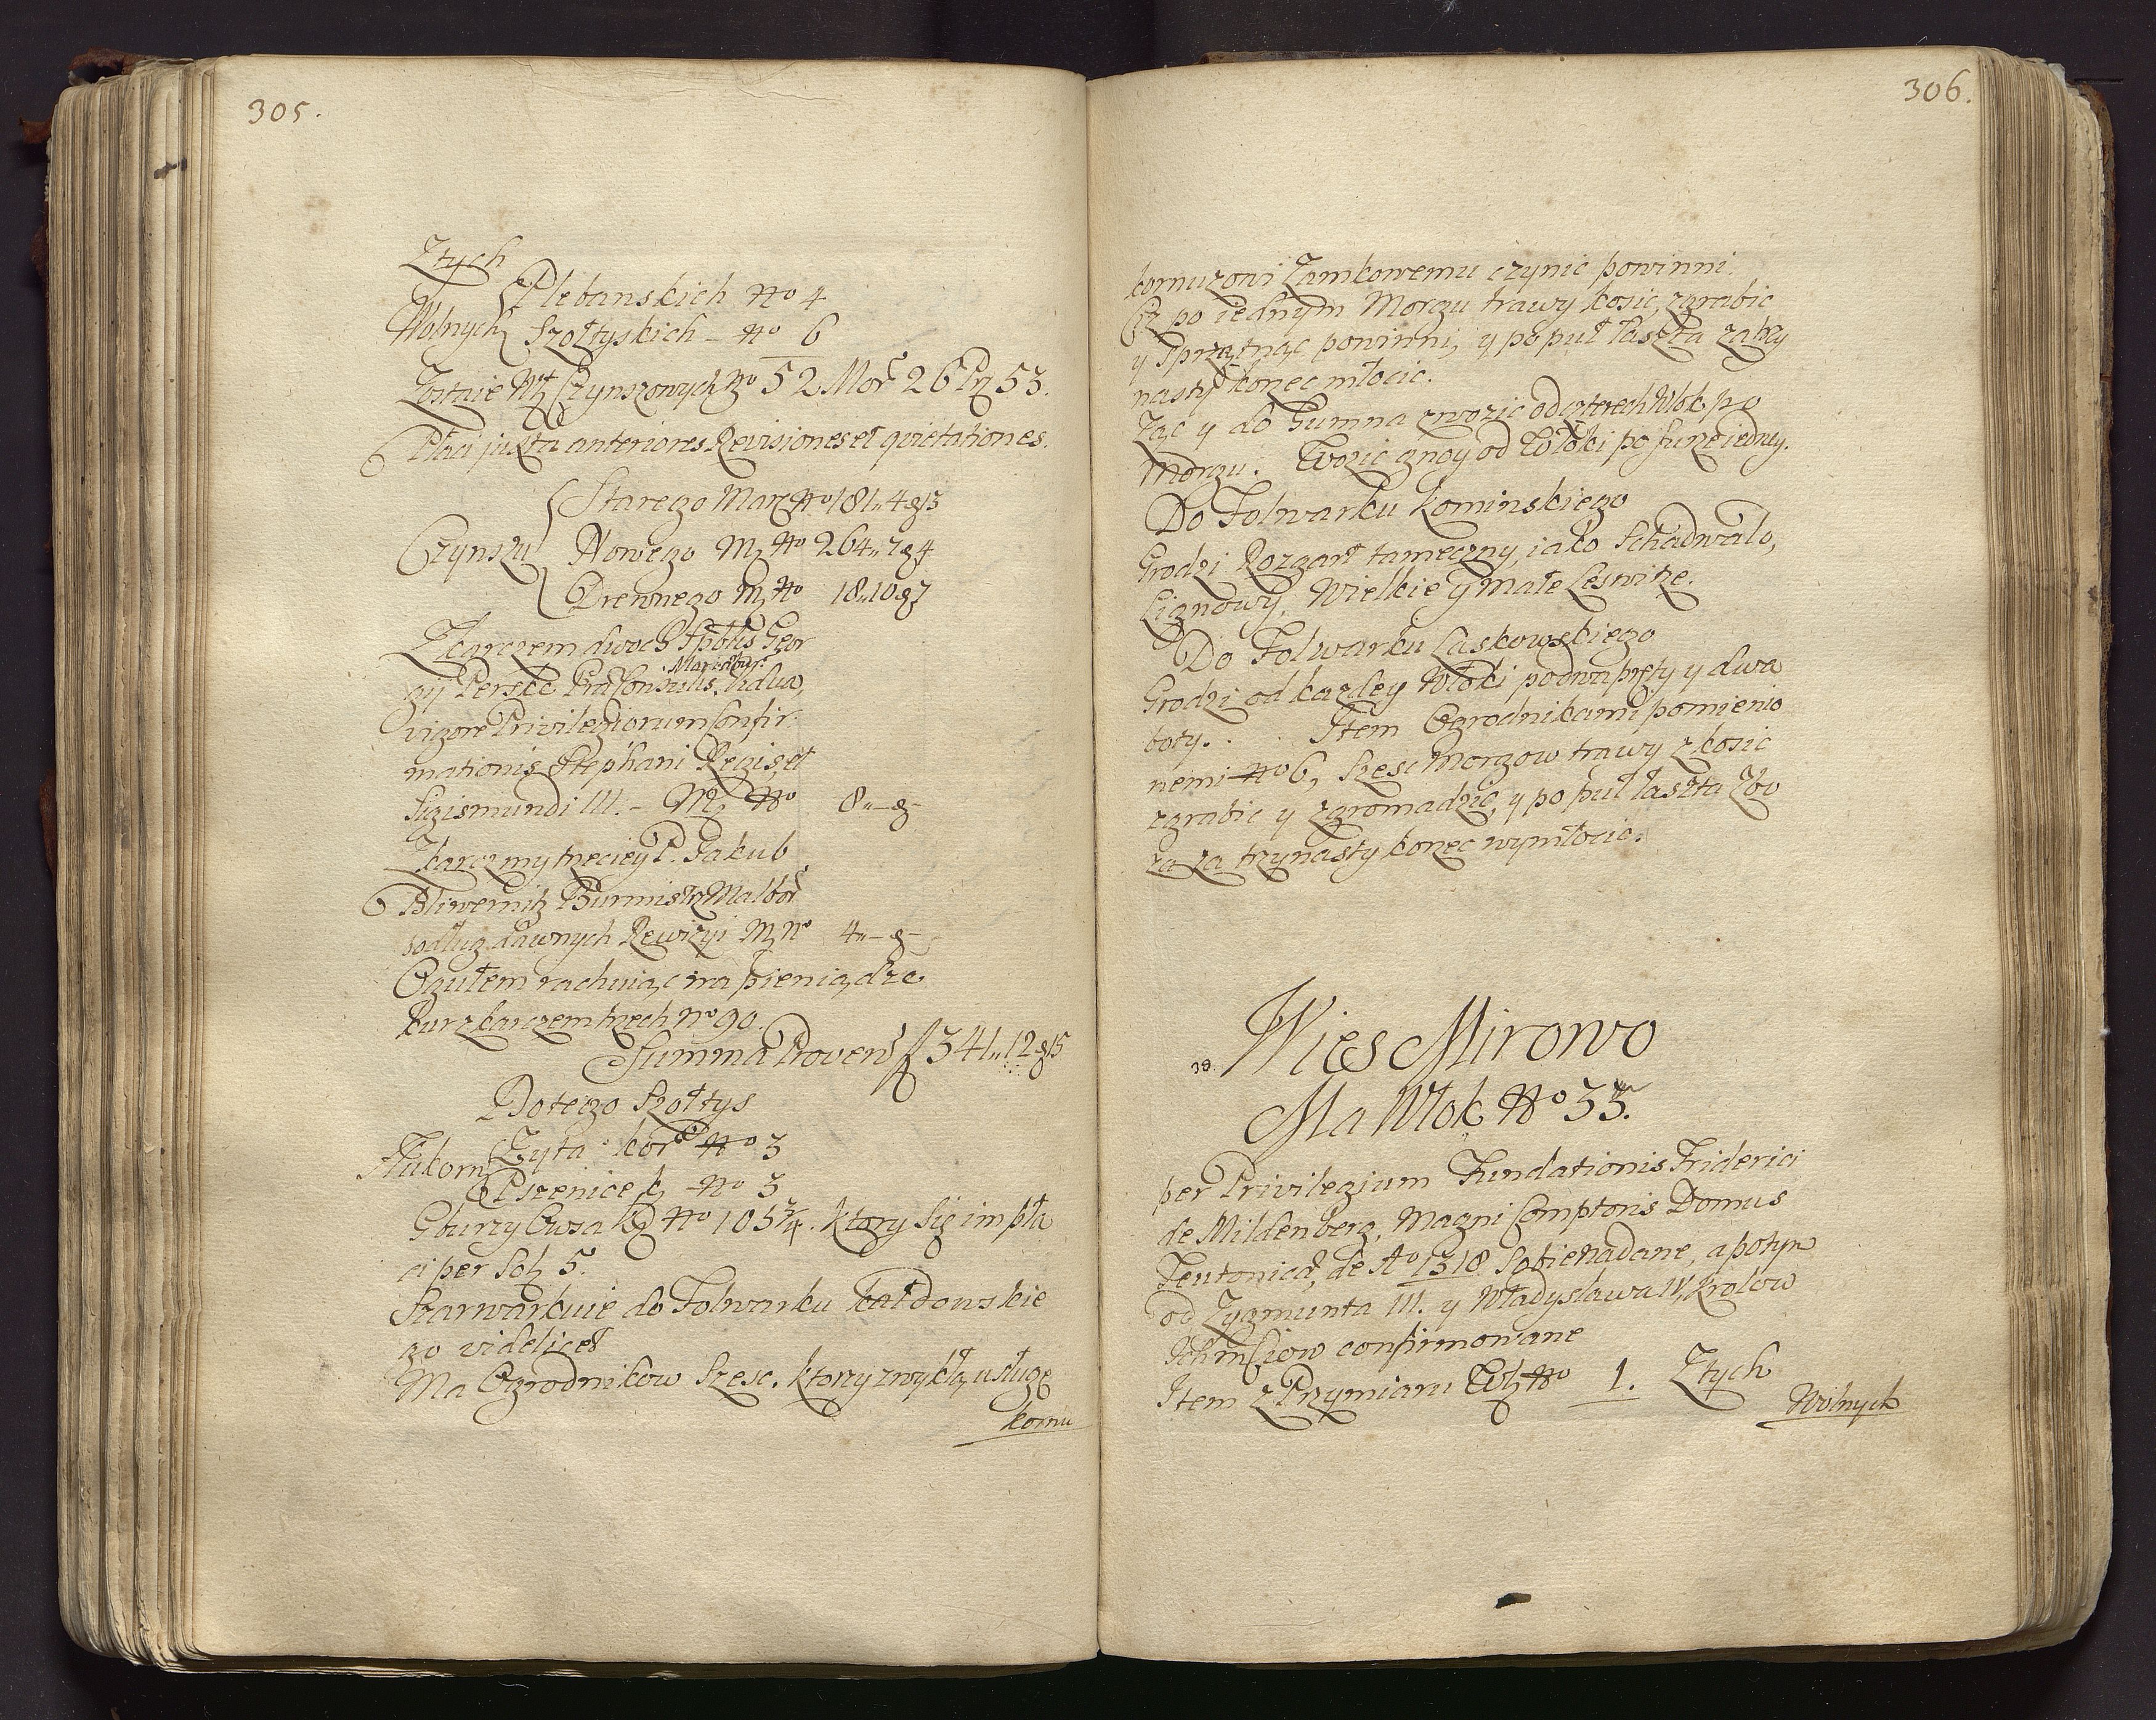 305.
Ztych
Plebanskich No 4
Wolnych Szołtyskich - No 6
Zostaie Wł Czynszowych No 52 Mor 26 Prę 53.
Płaci juxta anteriores Revisiones et qvietationes.
Starego Mar No 181,, 4 g 13
Czynszu Nowego M No 264,, 7 g 4
Drewnego M No 18,, 10 g 7
Zkarczem dwoch Spblis Geor
Marieabur:
gij Perske Praconsulis, vidua,
vigore Privilegiorum Confir-
mationis Stephani Regis, et
Sigismundi III. - M No 8,, - g -
Zkarczmy trzeciey P. Jakub
Burmistrz Malbor
podług dawnych Rewizyi M No 4,, - g -
Ogułem rachuiąc na pieniądze
kur z karczem trzech No 90.
Summa Proven f 341,, 12 g 15
Do tego Szołtys
Żyta kor No 3
Pszenice k No 3
Gburzy Owsa k No 105 3/4. ktory się im pła
ci per Sol 5.
Szarwarkuie do Folwarku Kałdowskie
go videlicet
Ma Ogrodnikow Szesc, ktorzy zwykłą usługę
komu
306.
kornuzowi Zamkowemu czynic powinni.
po iednym Morgu trawy kosic, zgrabic
y Sprzątnąc powinni, y po puł łaszta za trzy
nasty korzec młocic.
Żąc y do Gumna zwozic od czterech Włok po
Morgu. Wozic gnoy od Włoki po furze iedney.
Do Folwarku Kominskiego
Grodzi Rozgart tameczny, iako Schadwałd,
Lignowy, Wielkie y Małe Leswize.
Do Folwarku Laskowskiego
Grodzi od kazdey Włoki po dwa pręty y dwa
boty. . . Item Ogrodnikami pomienio
nemi No 6, Szesc Morgow trawy zkosic
zgrabic y zgromadzic, y po puł łaszta Zbo
za za trzynasty korzec wymłocic.
38. Wies Mirowo
Ma Włok No 35.
per Privilegium Fundationis Friderici
de Mildenberg, Magni Comptoris Domus
Teutonicae, de Ao 1318 Sobie nadane, a potym
od Zygmunta III. y Władysława IV, Krolow
confirmowane
Item z Przymiaru Wł No 1. Ztych
Wolnych